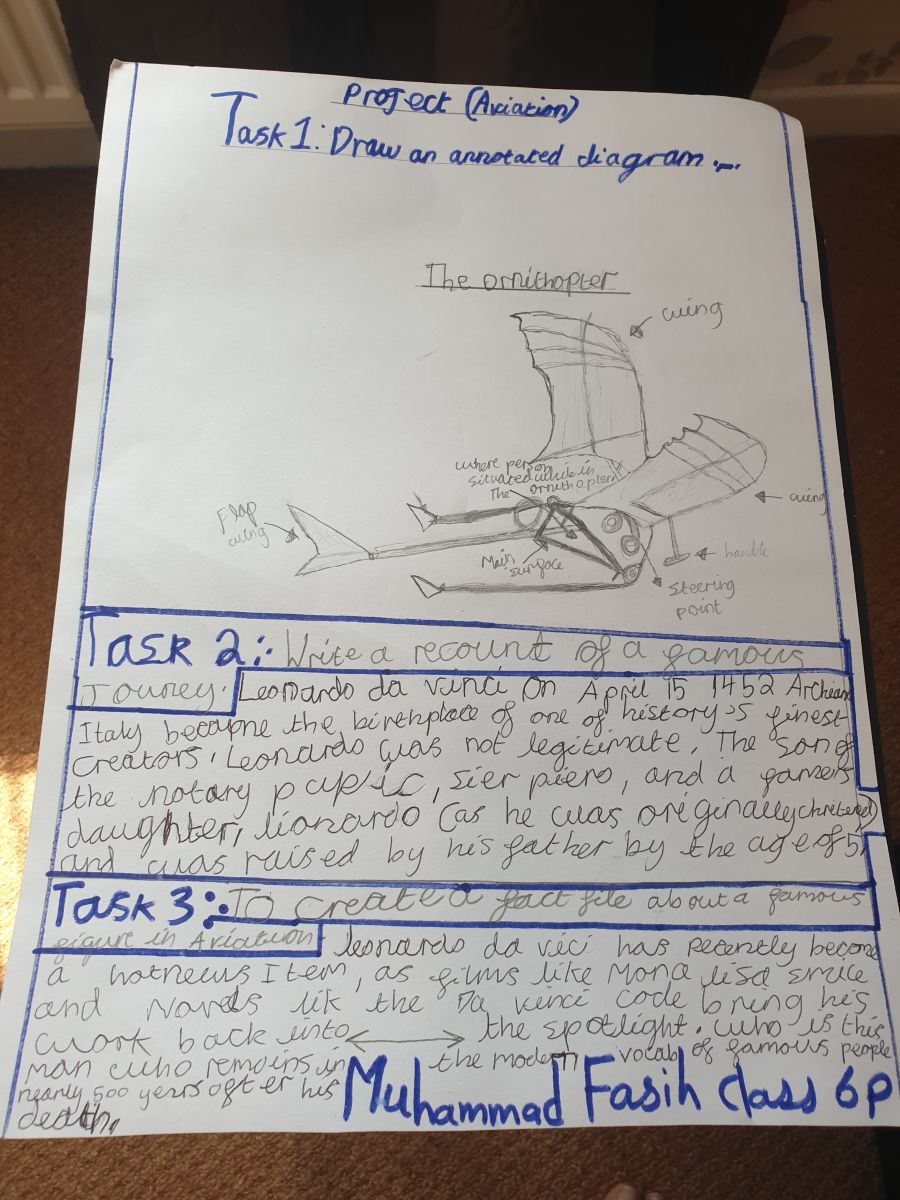 Project (Aviation)
Task 1: Draw an annotated diagram...
The ornithopter
wing
where person
situated while in
The ornithopter
wing
Flap
wing
Main
surface
handle
Steering
point
Task 2: Write a recount of a famous
Jouney. Leonardo da vinci on April 15 1452
Italy became the birthplace of one of history's finest
Creators. Leonardo was not legitimate. The son of
the notary, sier piero, and a
daughter, lionardo (as he was originally
and was raised by his father by the age of 5.
Task 3: To create a fact file about a famous
figure in Aviation. leonardo da vici has recently become
a hotnews Item, as films like Mona lisa smile
and Novels lik the Da vinci code bring his
work back into the spotlight. who is this
man who remains in the modern vocab of famous people
nearly 500 years after his
death.
Muhammad Fasih class 6P